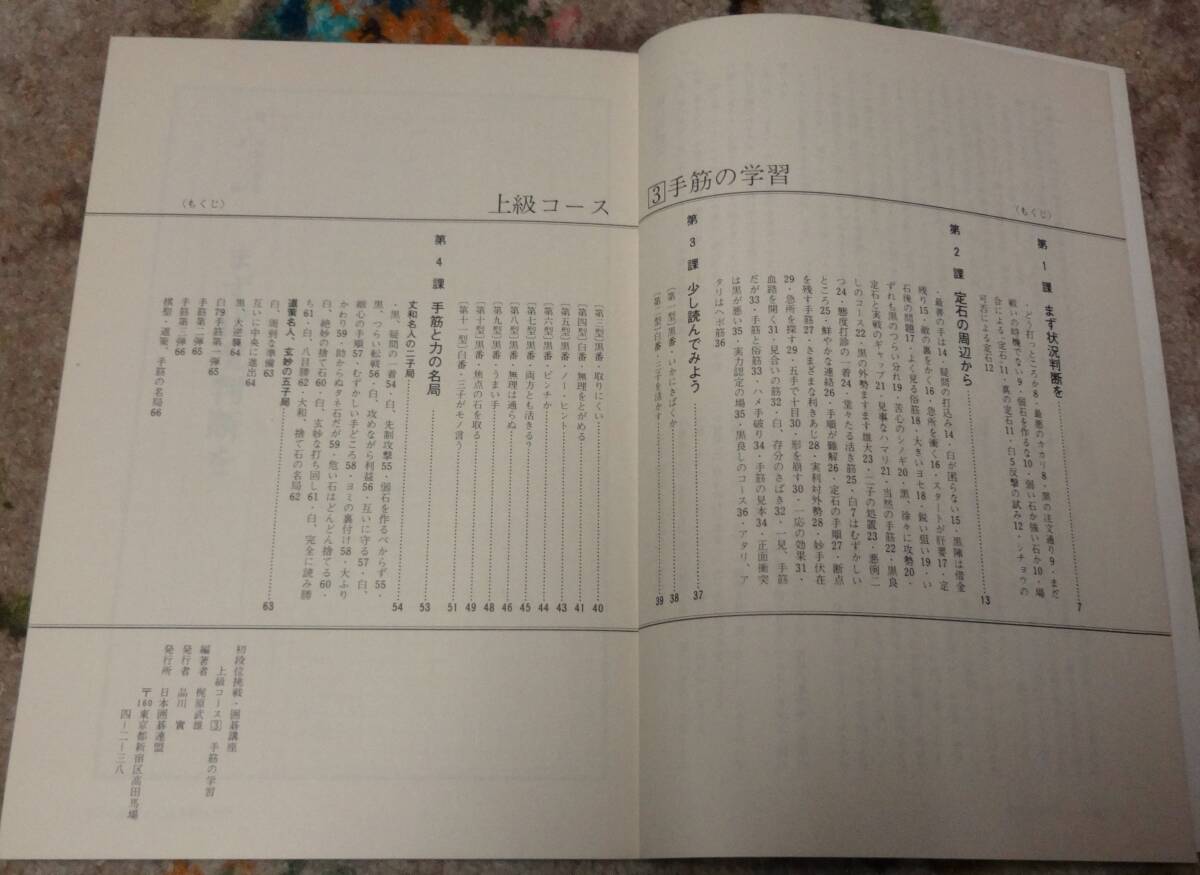 3 手筋の学習
(もくじ)
第1課 まず状況判断を……7
・どう打つところか8・最悪のカカリ8・黒の注文通り9・まだ
戦いの時機でない9・弱石を作るな10・弱い石か強い石か10・場
合による定石11・真の定石11・白5反撃の試み12・シチョウの
可否による定石12
第2課 定石の周辺から……13
・最善の手は14・疑問の打込み14・白が困らない15・黒陣は借金
残り15・敵の裏をかく16・急所を衝く16・スタートが肝要17・定
石後の問題17・よく見る俗筋18・大きいヨセ18・鋭い狙い19・い
ずれも黒のつらい分れ19・苦心のシノギ20・黒、徐々に攻勢20・
定石と実戦のギャップ21・見事なハマリ21・当然の手筋22・黒良
しのコース22・黒の外勢ますます雄大23・二子の処置23・悪例二
つ24・態度打診の一着24・堂々たる活き筋25・白7はむずかしい
ところ25・鮮やかな連絡26・手順が難解26・定石の手順27・断点
を残す手筋27・さまざまな利きあじ28・実利対外勢28・妙手伏在
29・急所を探す29・五手で十目30・形を崩す30・一応の効果31・
血路を開く31・見合いの筋32・白、存分のさばき32・一見、手筋
だが33・手筋と俗筋33・ハメ手破り34・手筋の見本34・正面衝突
は黒が悪い35・実力認定の場35・黒良しのコース36・アタリ、ア
タリはヘボ筋36
第3課 少し読んでみよう……37
〔第一型〕黒番・いかにさばくか……38
〔第二型〕白番・三子を活かす……39
上級コース
(もくじ)
〔第三型〕黒番・取りにくい……40
〔第四型〕白番・無理をとがめる……41
〔第五型〕黒番・ノー・ヒント……43
〔第六型〕黒番・ピンチか……44
〔第七型〕黒番・両方とも活きる?……45
〔第八型〕黒番・無理は通らぬ……46
〔第九型〕黒番・うまい手……48
〔第十型〕黒番・焦点の石を取る……49
〔第十一型〕白番・三子がモノ言う……51
第4課 手筋と力の名局……53
丈和名人の二子局……54
・黒、疑問の一着54・白、先制攻撃55・弱石を作るべからず55・
黒、つらい転戦56・白、攻めながら利益56・互いに守る57・白、
細心の手順57・むずかしい手どころ58・ヨミの裏付け58・大ふり
かわり59・助からぬタネ石だが59・危い石はどんどん捨てる60・
白、絶妙の捨て石60・白、玄妙な打ち回し61・白、完全に読み勝
ち61・白、八目勝62・大和、捨て石の名局62
道策名人、玄妙の五子局……63
白、周到な準備63
互いに中央に進出64
黒、大逆襲64
白79手筋第一弾65
手筋第二弾65
手筋第三弾66
棋聖・道策、手筋の名局66
初段位挑戦・囲碁講座
上級コース3 手筋の学習
編著者 梶原武雄
発行者 品川實
発行所 日本囲碁連盟
〒160 東京都新宿区高田馬場
四-二-三八